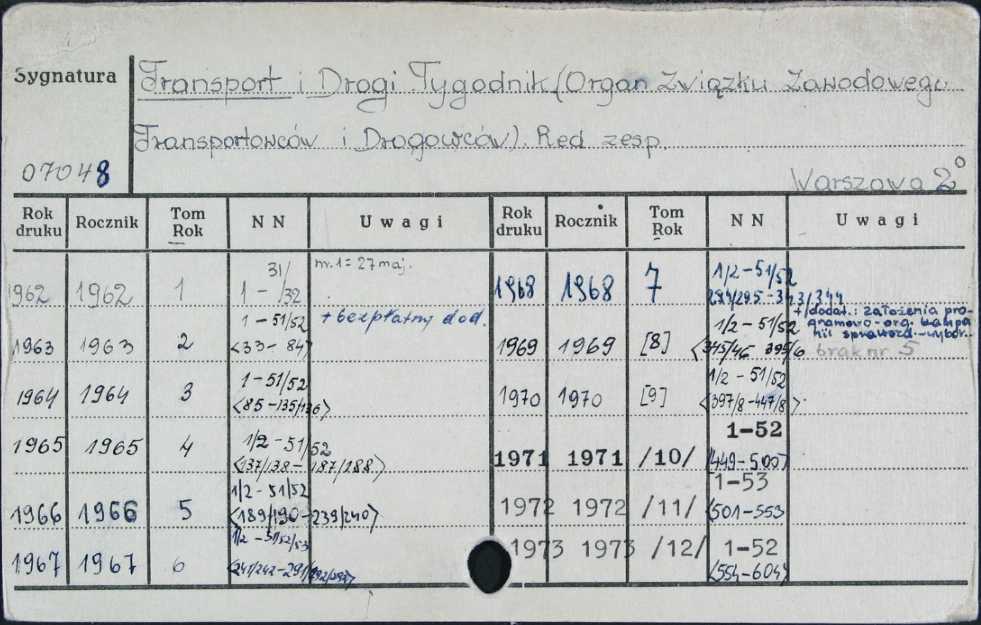 Sygnatura
Transport i Drogi Tygodnik (Organ Związku Zawodowego
Transportowców i Drogowców). Red zesp.
07048
Warszawa 2°
Rok druku Rocznik Tom Rok NN Uwagi Rok druku Rocznik Tom Rok NN Uwagi
1962 1962 1 1 - 31/32 nr. 1 = 27 maj.
1963 1963 2 1 - 51/52 <33 - 84> + bezpłatny dod.
1964 1964 3 1 - 51/52 <85 - 135/136>
1965 1965 4 1/2 - 51/52 <137/138 - 187/188>
1966 1966 5 1/2 - 51/52 <189/190 - 239/240>
1967 1967 6 1/2 - 51/52/53 <241/242 - 291/292/293>
1968 1968 7 1/2 - 51/52 294/295 - 343/344
1969 1969 [8] 1/2 - 51/52 <345/46 395/6 +/dodat.: założenia pro-
gramowo-org. kampa
nii sprawozd.-wybor.
brak nr 5
1970 1970 [9] 1/2 - 51/52 <397/8 - 447/8>
1971 1971 /10/ 1-52 <449-500>
1972 1972 /11/ 1-53 <501-553
1973 1973 /12/ 1-52 <554-604>